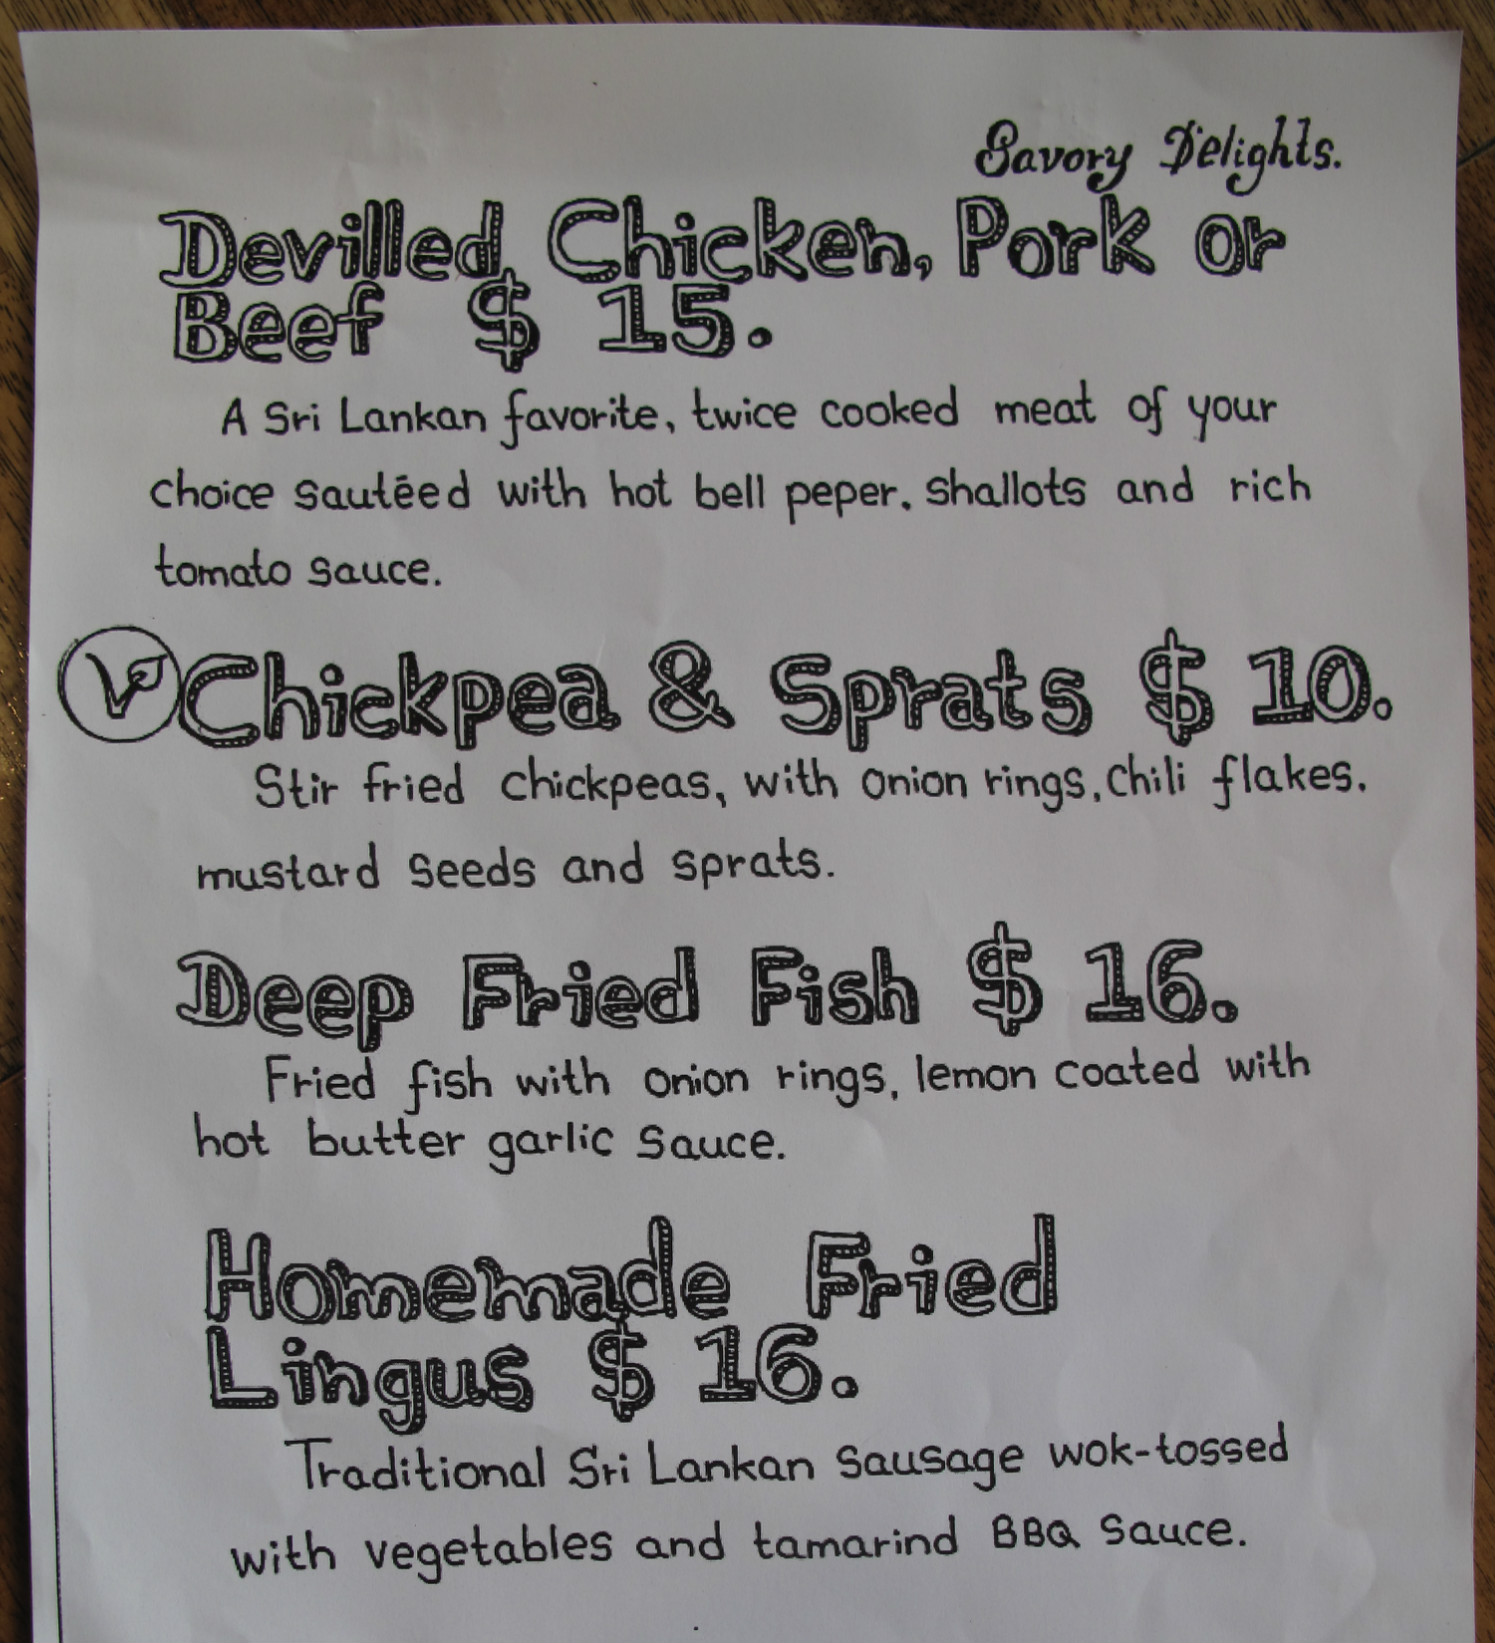 Savory Delights.
Devilled Chicken, Pork or
Beef $ 15.
A Sri Lankan favorite, twice cooked meat of your
choice sautéed with hot bell peper, shallots and rich
tomato sauce.
V Chickpea & Sprats $ 10.
Stir fried chickpeas, with onion rings, chili flakes,
mustard seeds and sprats.
Deep Fried Fish $ 16.
Fried fish with onion rings, lemon coated with
hot butter garlic sauce.
Homemade Fried
Lingus $ 16.
Traditional Sri Lankan sausage wok-tossed
with vegetables and tamarind BBQ sauce.